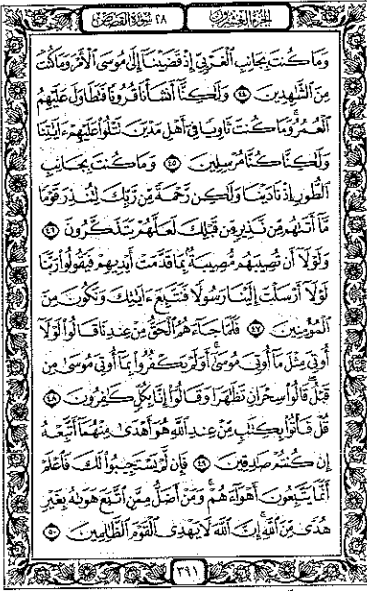 الجزء العشرون
٢٨ سورة القصص
وَمَا كُنتَ بِجَانِبِ ٱلْغَرْبِىِّ إِذْ قَضَيْنَآ إِلَىٰ مُوسَى ٱلْأَمْرَ وَمَا كُنتَ
مِنَ ٱلشَّـٰهِدِينَ ٤٤ وَلَـٰكِنَّآ أَنشَأْنَا قُرُونًا فَتَطَاوَلَ عَلَيْهِمُ
ٱلْعُمُرُ وَمَا كُنتَ ثَاوِيًا فِىٓ أَهْلِ مَدْيَنَ تَتْلُوا۟ عَلَيْهِمْ ءَايَـٰتِنَا
وَلَـٰكِنَّا كُنَّا مُرْسِلِينَ ٤٥ وَمَا كُنتَ بِجَانِبِ
ٱلطُّورِ إِذْ نَادَيْنَا وَلَـٰكِن رَّحْمَةً مِّن رَّبِّكَ لِتُنذِرَ قَوْمًا
مَّآ أَتَىٰهُم مِّن نَّذِيرٍ مِّن قَبْلِكَ لَعَلَّهُمْ يَتَذَكَّرُونَ ٤٦
وَلَوْلَآ أَن تُصِيبَهُم مُّصِيبَةٌۢ بِمَا قَدَّمَتْ أَيْدِيهِمْ فَيَقُولُوا۟ رَبَّنَا
لَوْلَآ أَرْسَلْتَ إِلَيْنَا رَسُولًا فَنَتَّبِعَ ءَايَـٰتِكَ وَنَكُونَ مِنَ
ٱلْمُؤْمِنِينَ ٤٧ فَلَمَّا جَآءَهُمُ ٱلْحَقُّ مِنْ عِندِنَا قَالُوا۟ لَوْلَآ
أُوتِىَ مِثْلَ مَآ أُوتِىَ مُوسَىٰٓ أَوَلَمْ يَكْفُرُوا۟ بِمَآ أُوتِىَ مُوسَىٰ مِن
قَبْلُ قَالُوا۟ سِحْرَانِ تَظَـٰهَرَا وَقَالُوٓا۟ إِنَّا بِكُلٍّ كَـٰفِرُونَ ٤٨
قُلْ فَأْتُوا۟ بِكِتَـٰبٍ مِّنْ عِندِ ٱللَّهِ هُوَ أَهْدَىٰ مِنْهُمَآ أَتَّبِعْهُ
إِن كُنتُمْ صَـٰدِقِينَ ٤٩ فَإِن لَّمْ يَسْتَجِيبُوا۟ لَكَ فَٱعْلَمْ
أَنَّمَا يَتَّبِعُونَ أَهْوَآءَهُمْ وَمَنْ أَضَلُّ مِمَّنِ ٱتَّبَعَ هَوَىٰهُ بِغَيْرِ
هُدًى مِّنَ ٱللَّهِ إِنَّ ٱللَّهَ لَا يَهْدِى ٱلْقَوْمَ ٱلظَّـٰلِمِينَ ٥٠
٣٩١